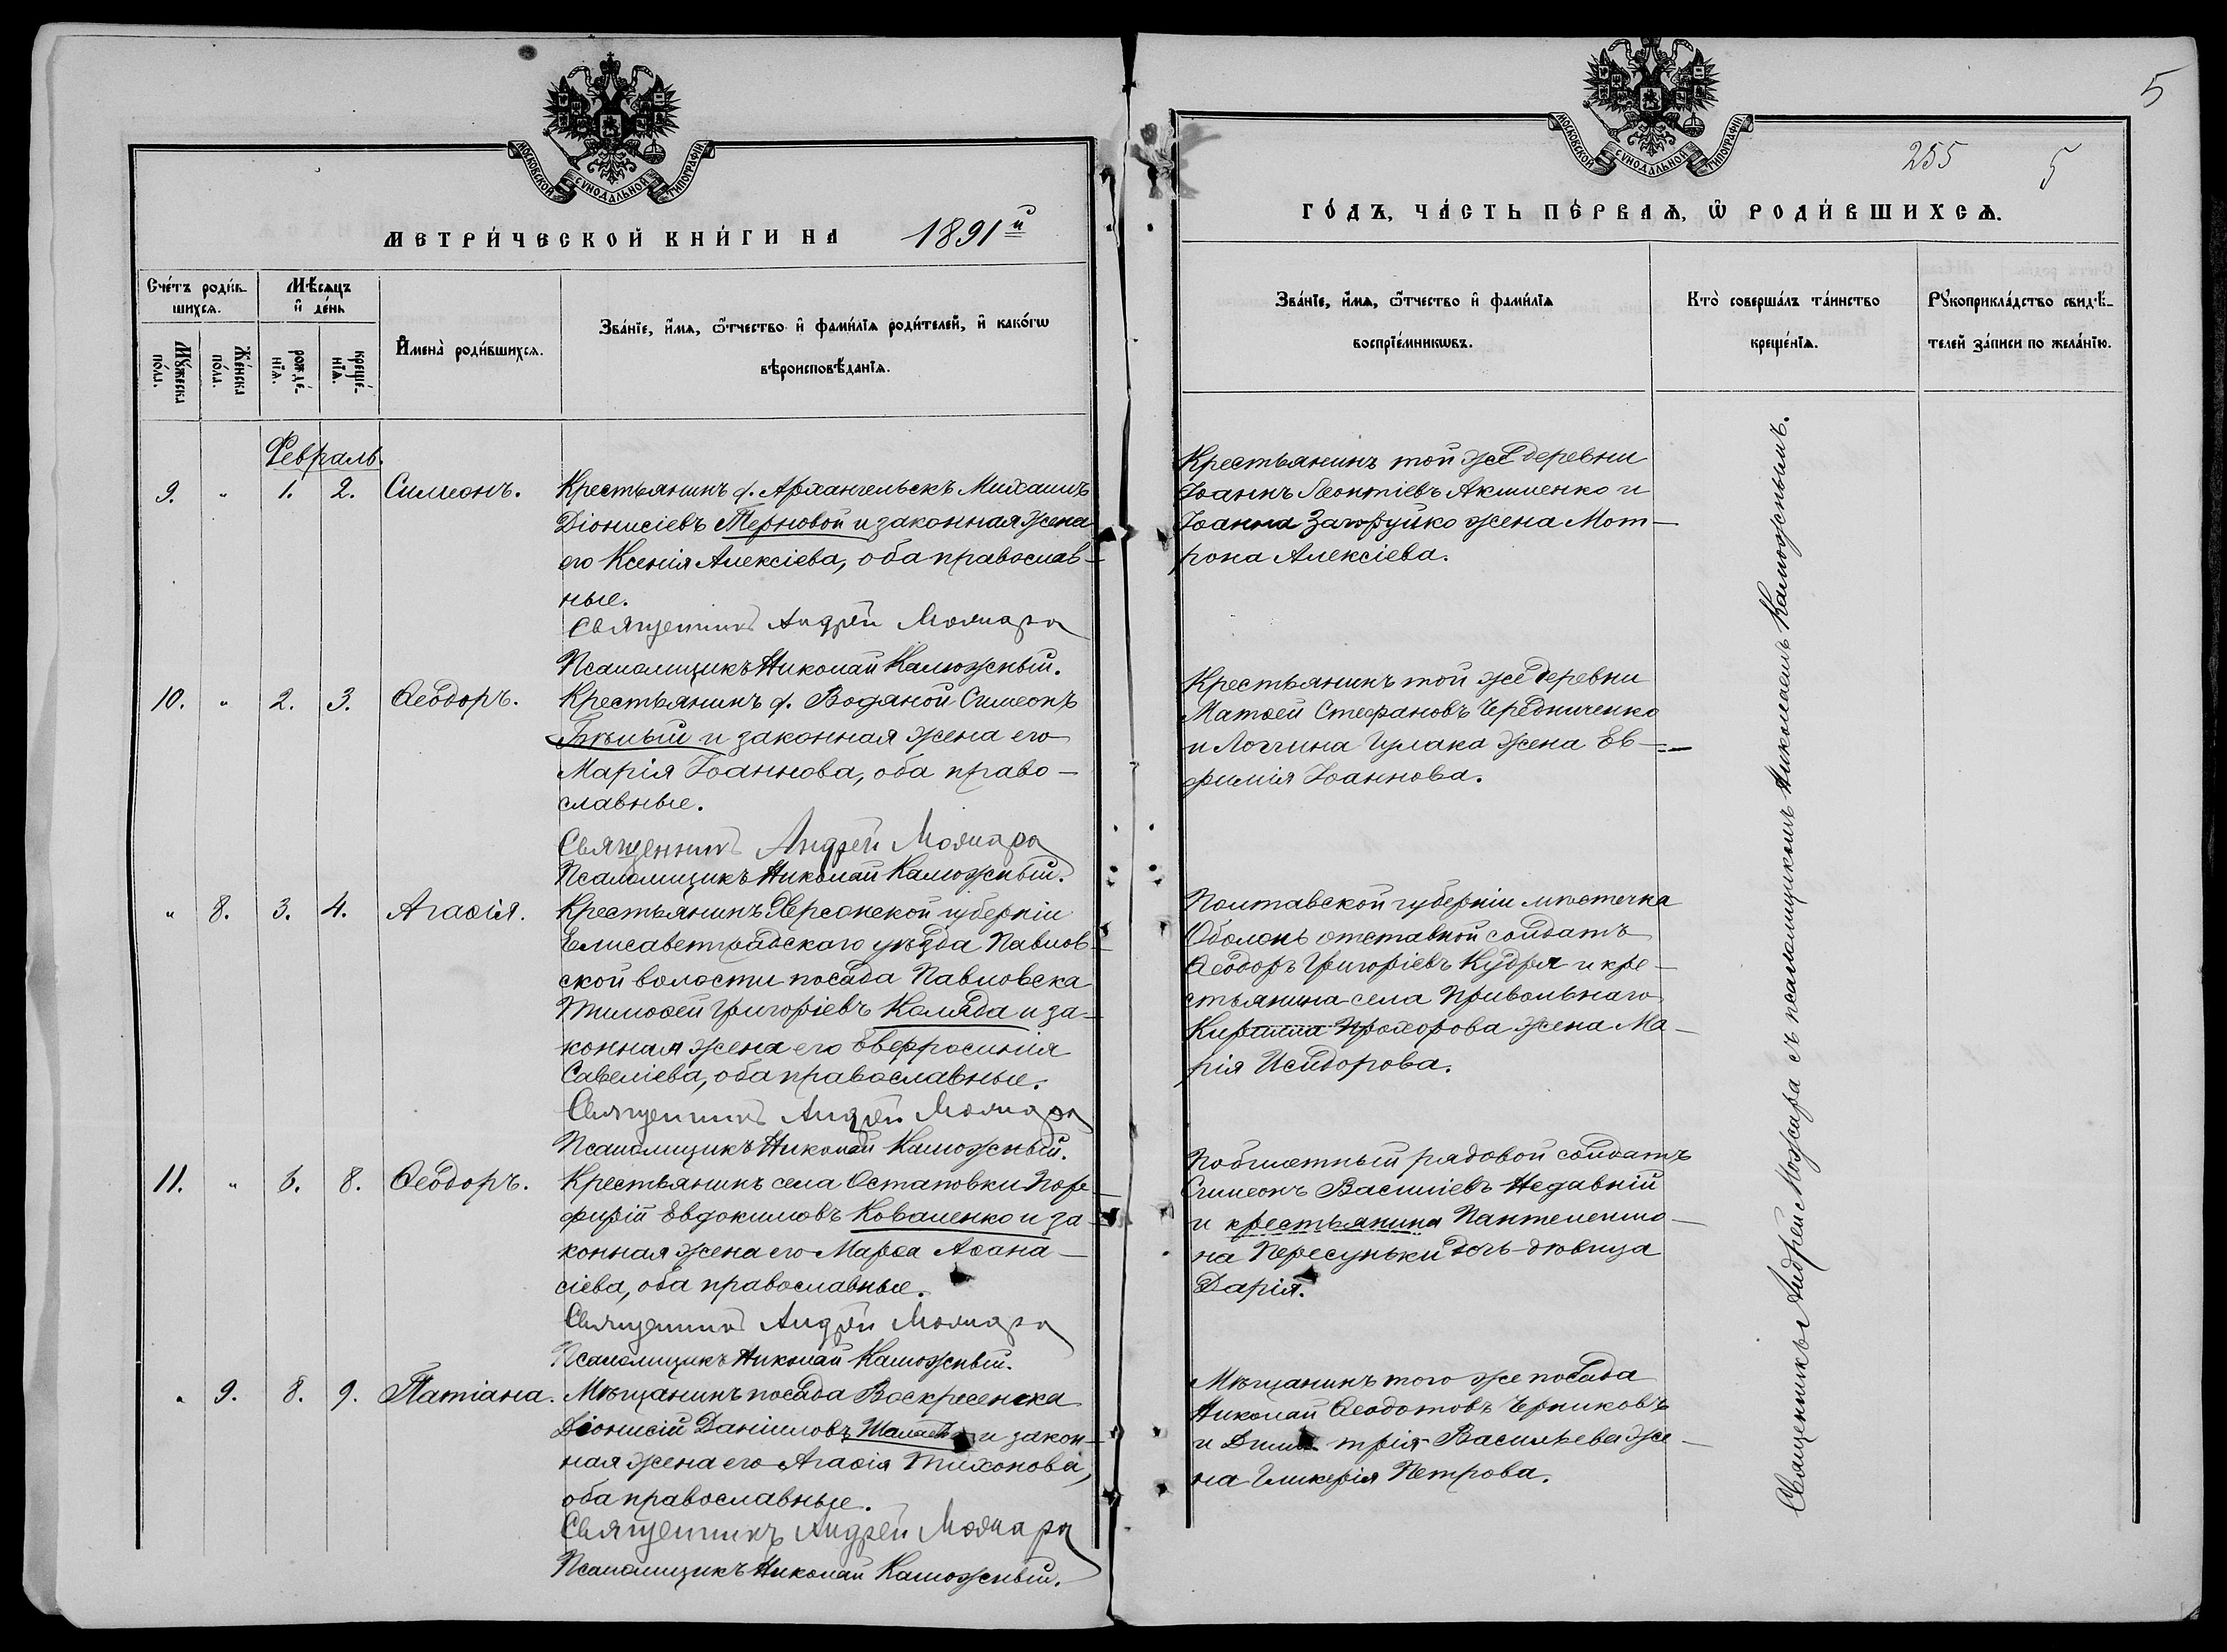 МОСКОВСКОЙ СѴНОДАЛЬНОЙ ТИПОГРАФІИ
МЕТРИ́ЧЕСКОЙ КНИ́ГИ НА 1891й
Сче́тъ роди́в-
шихся.
Мѣ́сяцъ
и҆ де́нь
Мꙋ́жеска
по́ла.
Же́нска
по́ла.
рожде́-
нїѧ.
креще́-
нїѧ.
И҆мена̀ роди́вшихсѧ.
Зва́нїе, и҆́мѧ, ѻ҆́тчество и҆ фами́лїѧ роди́телей, и҆ како́гѡ
вѣроисповѣ́данїѧ.
Февраль.
9. " 1. 2. Симеонъ.
Крестьянинъ д. Архангельскъ Михаилъ
Діонисіевъ Терновой и законная жена
его Ксенія Алексіева, оба православ-
ные.
Священникъ Андрей Можара
Псаломщикъ Николай Калюжный.
10. " 2. 3. Ѳеодоръ.
Крестьянинъ д. Водяной Симеонъ
Бѣлый и законная жена его
Марія Іоаннова, оба право-
славные.
Священникъ Андрей Можара
Псаломщикъ Николай Калюжный.
" 8. 3. 4. Агаѳія.
Крестьянинъ Херсонской губерніи
Елисаветградскаго уѣзда Павлов-
ской волости посада Павловска
Тимоѳей Григоріевъ Коляда и за-
конная жена его Евфросинія
Савеліева, оба православные.
Священникъ Андрей Можара
Псаломщикъ Николай Калюжный.
11. " 6. 8. Ѳеодоръ.
Крестьянинъ села Остановки Пор-
фирій Евдокимовъ Коваленко и за-
конная жена его Марѳа Аѳана-
сіева, оба православные.
Священникъ Андрей Можара
Псаломщикъ Николай Калюжный.
" 9. 8. 9. Татіана.
Мѣщанинъ посада Воскресенска
Діонисій Даніиловъ и закон-
ная жена его Агаѳія Тихонова,
оба православные.
Священникъ Андрей Можара
Псаломщикъ Николай Калюжный.
5
МОСКОВСКОЙ СѴНОДАЛЬНОЙ ТИПОГРАФІИ
255 5
ГО́ДЪ, ЧА́СТЬ ПЕ́РВАѦ, Ѡ҆ РОДИ́ВШИХСѦ.
Зва́нїе, и҆́мѧ, ѻ҆́тчество и҆ фами́лїѧ
воспрїе́мникѡвъ.
Кто̀ соверша́лъ та́инство
креще́нїѧ.
Рꙋкоприкла́дство свидѣ́-
телей за́писи по жела́нїю.
Крестьянинъ той же деревни
Іоаннъ Леонтіевъ Акименко и
Іоанна Загоруйко жена Мот-
рона Алексіева.
Крестьянинъ той же деревни
Матѳей Стефановъ Чередниченко
и Логгина Гулака жена Ев-
фимія Іоаннова.
Полтавской губерніи мѣстечка
Оболонь отставной солдатъ
Ѳеодоръ Григоріевъ Кудря и кре-
стьянина села Привольнаго
Кирилла Прохорова жена Ма-
рія Исидорова.
Побилетный рядовой солдатъ
Симеонъ Василіевъ Недавній
и крестьянина Пантелеимо-
на Пересуньки дочь-дѣвица
Дарія.
Мѣщанинъ того же посада
Николай Ѳеодотовъ Черниковъ
и Дими трія Васильева же-
на Гликерія Петрова.
Священникъ Андрей Можара съ псаломщикомъ Николаемъ Калюжнымъ.